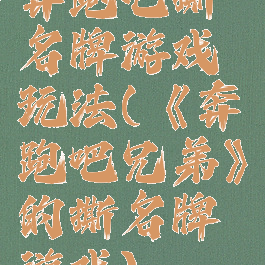 奔跑吧撕
名牌游戏
玩法(《奔
跑吧兄弟》
的撕名牌
游戏)